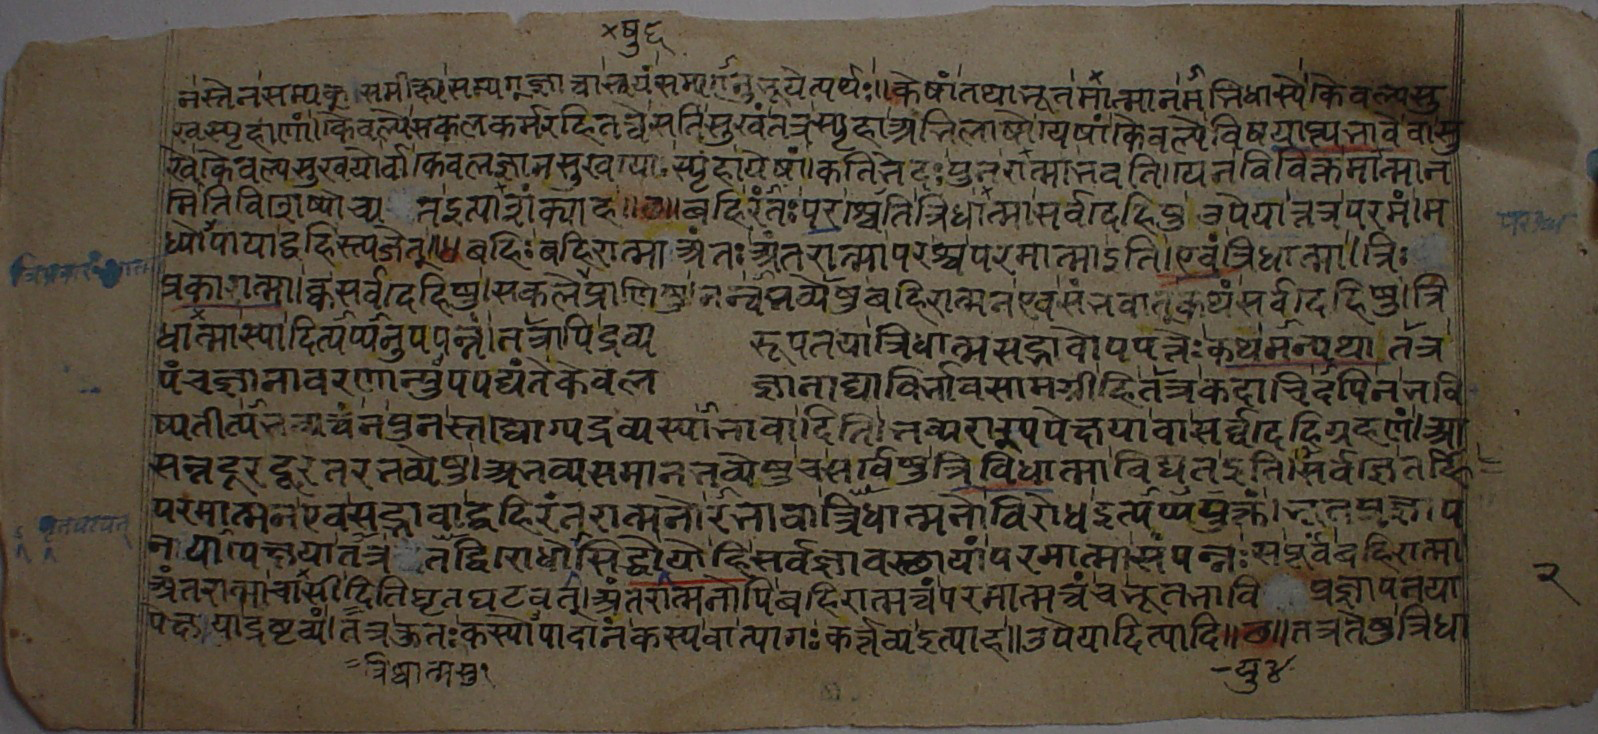 ×षु ६
नस्तेन सम्यक् समीक्ष्य सम्यग् ज्ञात्वा स्वयं सम्यगनुभूयेत्यर्थः॥ केषां तथाभूतमात्मानमभिधास्ये कैवल्यसु
खस्पृहाणां। कैवल्ये सकलकर्मरहितत्वे सति सुखं तत्र स्पृहा अभिलाषो येषां। कैवल्ये विषयाप्रभवे वा सु
खे। कैवल्यसुखयोर्वा। केवलज्ञानसुखयोः स्पृहा येषां। कतिभेदः पुनरात्मा भवति। येन विविक्तमात्मान
मिति विशेष्योच्य तइत्याशंक्याह॥छ॥ बहिरंतः परश्चेति त्रिधात्मा सर्वदेहिषु उपेयात्तत्र परमं म
ध्योपायाद्बहिस्त्यजेत्॥४ बहिः बहिरात्मा अंतः अंतरात्मा परश्च परमात्मा इति। एवं त्रिधात्मा। त्रिः
प्रकारात्मा। क्व सर्वदेहिषु। सकलप्राणिषु। नन्वभव्येषु बहिरात्मन एव संभवात् कथं सर्वदेहिषु। त्रि
धात्मा स्यादित्यप्यनुपपन्नं। तत्रापि द्रव्य रूपतया त्रिधात्मसद्भावोपपत्तेः कथमन्यथा तत्र
पंचज्ञानावरणान्युपपद्यंते केवल ज्ञानाद्याविर्भावसामग्री हि तत्र कदाचिदपि न भवि
ष्यतीत्यभव्यत्वं न पुनस्तद्योग्यद्रव्यस्याभावादिति। भव्यराश्यपेक्षया वा सर्वदेहिग्रहणं। आ
सन्नदूरदूरतरभव्येषु। अभव्यसमानभव्येषु च सर्वेषु त्रिविधात्मा विद्यत इति। सर्वज्ञे तर्हि =
परमात्मन एव सद्भावाद्बहिरंतरात्मनोरभावात्रिधात्मनो विरोध इत्यप्ययुक्तं। भूतप्रज्ञाप
नयापेक्षया तत्र तद्विरोधासिद्धेः यो हि सर्वज्ञावस्छायां परमात्मा संपन्नः स पूर्वं बहिरात्मा
अंतरात्मा चासीदिति घृतघटवत्। अंतरात्मनोपि बहिरात्मत्वं परमात्मत्वं च भूतभावि प्रज्ञापनया
पेक्षया द्रष्टव्यं। तत्र कुतः कस्योपादानं कस्य वा त्यागः कर्त्तव्य इत्याह॥ उपेयादित्यादि॥छ॥ तत्र तेषु त्रिधा
=त्रिधात्मसु१
-षु ४
२